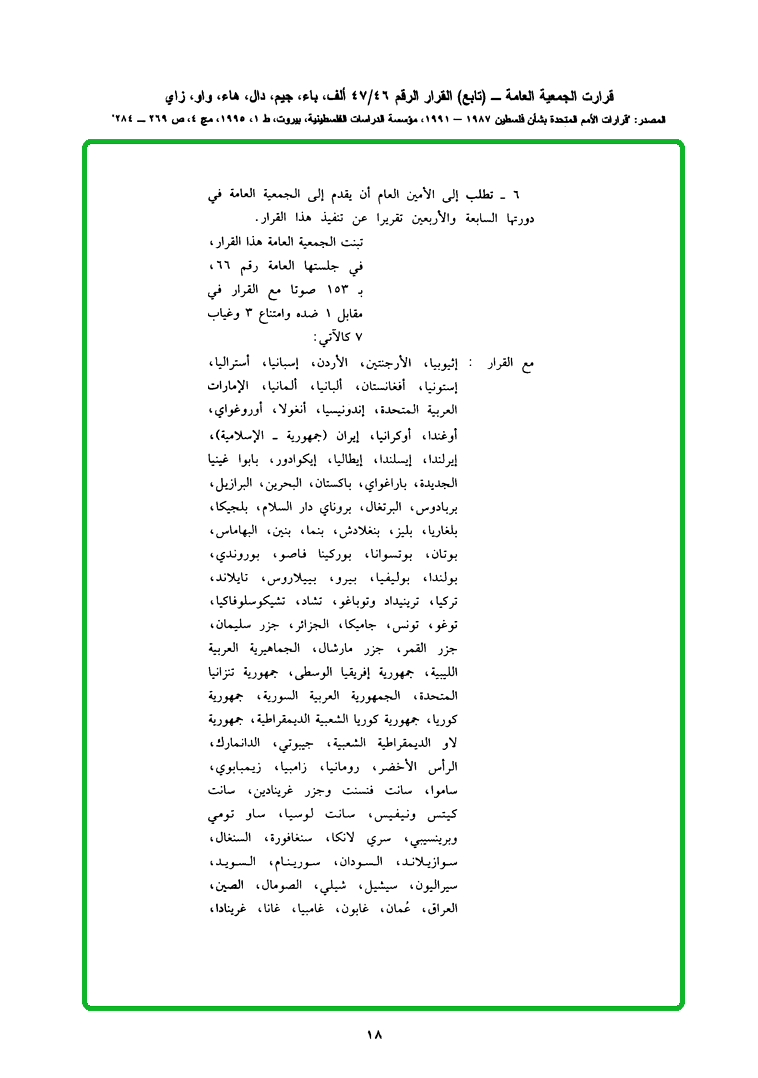 قرارت الجمعية العامة ــ (تابع) القرار الرقم ٤٧/٤٦ ألف، باء، جيم، دال، هاء، واو، زاي
المصدر: "قرارات الأمم المتحدة بشأن فلسطين ١٩٨٧ — ١٩٩١، مؤسسة الدراسات الفلسطينية، بيروت، ط ١، ١٩٩٥، مج ٤، ص ٢٦٩ ــ ٢٨٤"
٦ ـ تطلب إلى الأمين العام أن يقدم إلى الجمعية العامة في
دورتها السابعة والأربعين تقريرا عن تنفيذ هذا القرار.
تبنت الجمعية العامة هذا القرار،
في جلستها العامة رقم ٦٦،
بـ ١٥٣ صوتا مع القرار في
مقابل ١ ضده وامتناع ٣ وغياب
٧ كالآتي:
مع القرار : إثيوبيا، الأرجنتين، الأردن، إسبانيا، أستراليا،
إستونيا، أفغانستان، ألبانيا، ألمانيا، الإمارات
العربية المتحدة، إندونيسيا، أنغولا، أوروغواي،
أوغندا، أوكرانيا، إيران (جمهورية ـ الإسلامية)،
إيرلندا، إيسلندا، إيطاليا، إيكوادور، بابوا غينيا
الجديدة، باراغواي، باكستان، البحرين، البرازيل،
بربادوس، البرتغال، بروناي دار السلام، بلجيكا،
بلغاريا، بليز، بنغلادش، بنما، بنين، البهاماس،
بوتان، بوتسوانا، بوركينا فاصو، بوروندي،
بولندا، بوليفيا، بيرو، بييلاروس، تايلاند،
تركيا، ترينيداد وتوباغو، تشاد، تشيكوسلوفاكيا،
توغو، تونس، جاميكا، الجزائر، جزر سليمان،
جزر القمر، جزر مارشال، الجماهيرية العربية
الليبية، جمهورية إفريقيا الوسطى، جمهورية تنزانيا
المتحدة، الجمهورية العربية السورية، جمهورية
كوريا، جمهورية كوريا الشعبية الديمقراطية، جمهورية
لاو الديمقراطية الشعبية، جيبوتي، الدانمارك،
الرأس الأخضر، رومانيا، زامبيا، زيمبابوي،
ساموا، سانت فنسنت وجزر غرينادين، سانت
كيتس ونيفيس، سانت لوسيا، ساو تومي
وبرينسيبي، سري لانكا، سنغافورة، السنغال،
سوازيلاند، السودان، سورينام، السويد،
سيراليون، سيشيل، شيلي، الصومال، الصين،
العراق، عُمان، غابون، غامبيا، غانا، غرينادا،
١٨